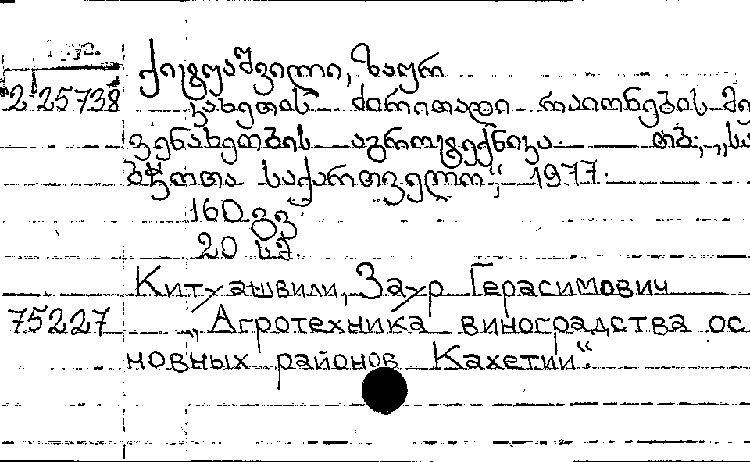 ქიტუაშვილი, ზაურ
2 25738 კახეთის ძირითადი რაიონების მე
ვენახეობის აგროტექნიკა. თბ., „სა
ბჭოთა საქართველო“, 1977.
160 გვ
20 სმ
Китуашвили, Заур Герасимович
75227 „Агротехника виноградства ос
новных районов Кахетии“.